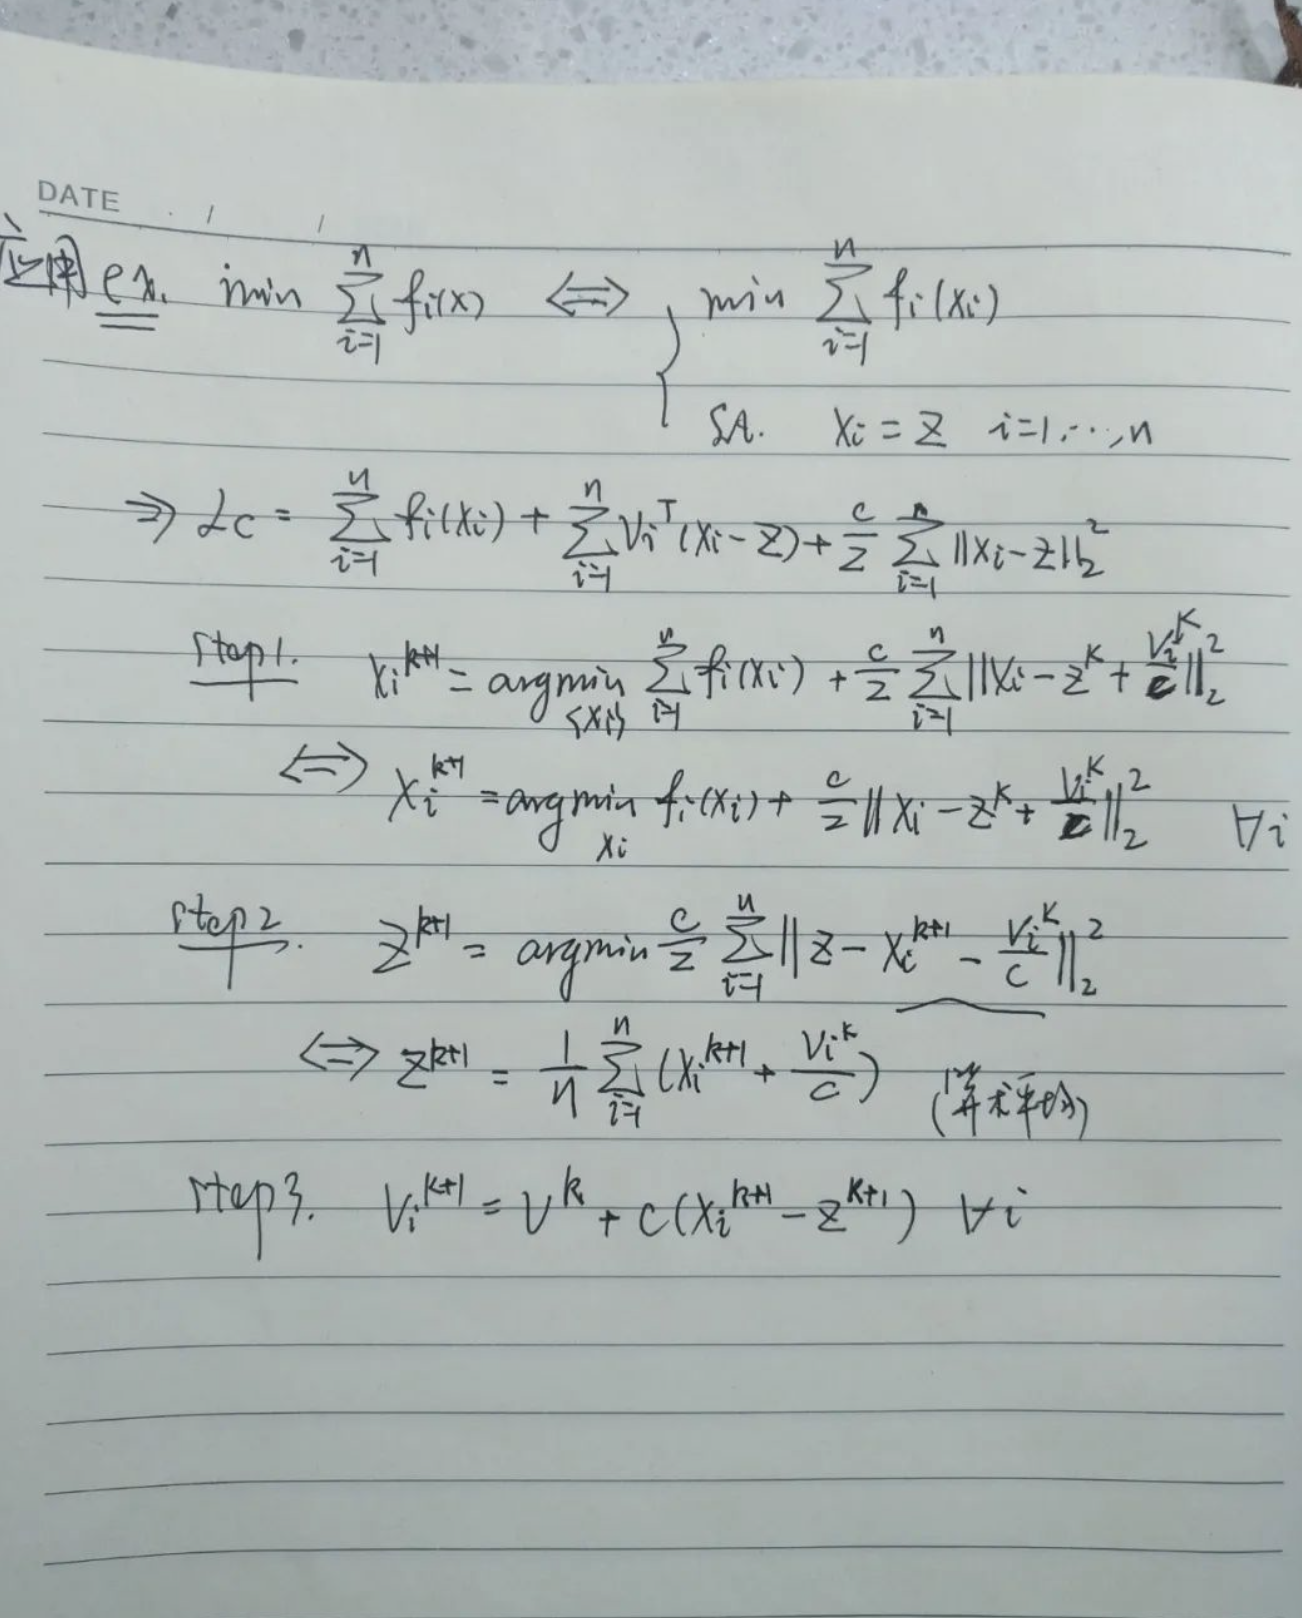 DATE / /
应用 ex. min ∑_{i=1}^{n} f_i(x) ⟺ { min ∑_{i=1}^{n} f_i(x_i)
s.t. x_i = z i=1,…,n
⇒ L_c = ∑_{i=1}^{n} f_i(x_i) + ∑_{i=1}^{n} v_i^T (x_i − z) + c/2 ∑_{i=1}^{n} ‖x_i − z‖_2^2
step1. x_i^{k+1} = argmin_{{x_i}} ∑_{i=1}^{n} f_i(x_i) + c/2 ∑_{i=1}^{n} ‖x_i − z^k + v_i^k/c‖_2^2
⟺ x_i^{k+1} = argmin_{x_i} f_i(x_i) + c/2 ‖x_i − z^k + v_i^k/c‖_2^2 ∀i
step2. z^{k+1} = argmin c/2 ∑_{i=1}^{n} ‖z − x_i^{k+1} − v_i^k/c‖_2^2
⟺ z^{k+1} = 1/n ∑_{i=1}^{n} (x_i^{k+1} + v_i^k/c) (算术平均)
step3. v_i^{k+1} = v^k + c(x_i^{k+1} − z^{k+1}) ∀i